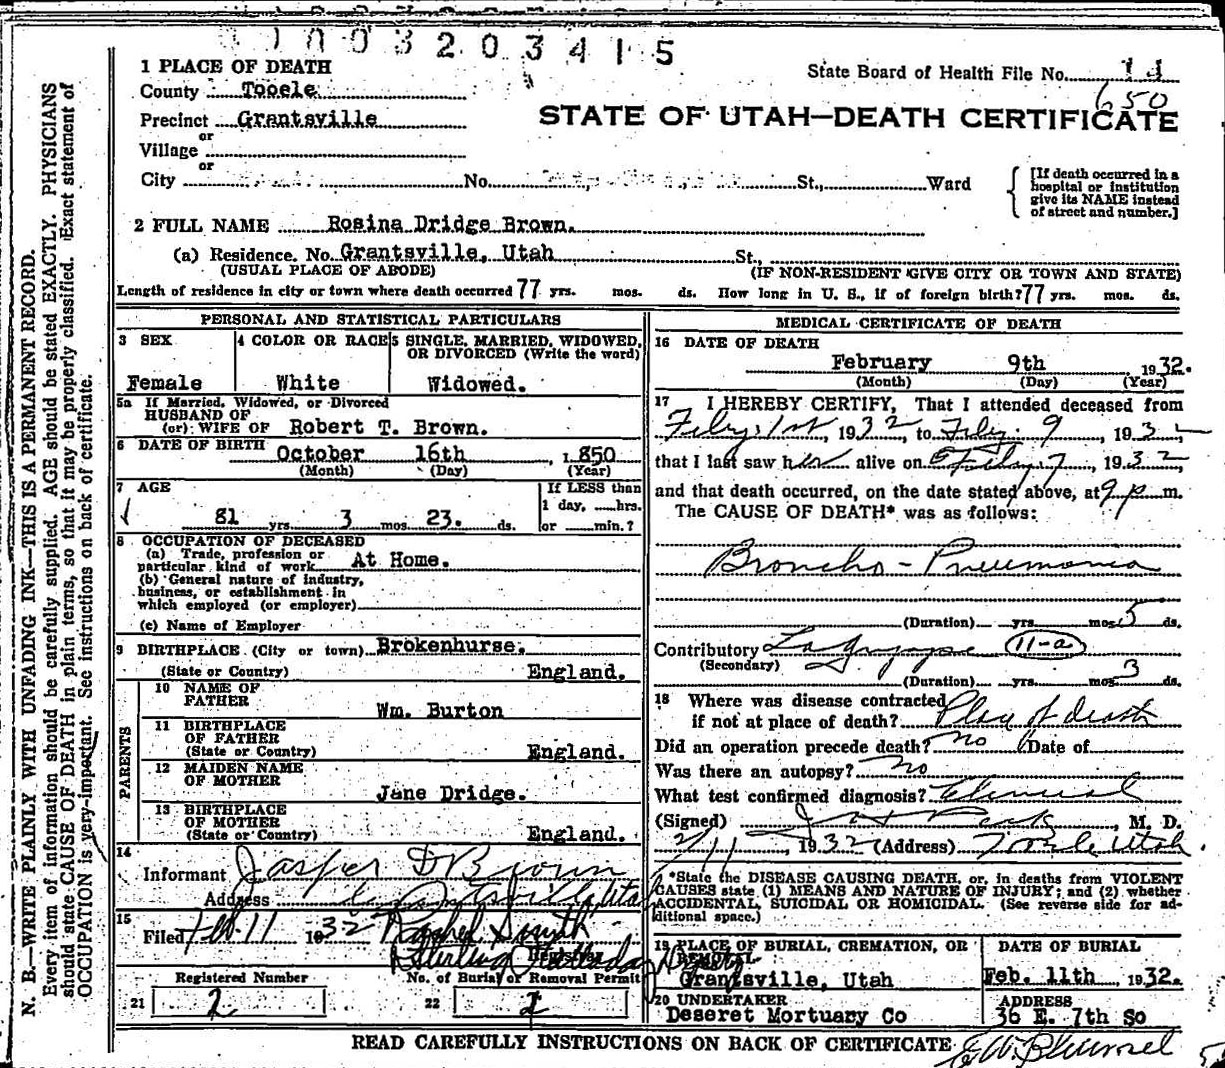 1003203415
1 PLACE OF DEATH
State Board of Health File No. 14
County Tooele
650
STATE OF UTAH—DEATH CERTIFICATE
Precinct Grantsville
or
Village
or
City No. St., Ward
[If death occurred in a hospital or institution give its NAME instead of street and number.]
2 FULL NAME Rosina Dridge Brown.
(a) Residence. No. Grantsville, Utah St.,
(USUAL PLACE OF ABODE) (IF NON-RESIDENT GIVE CITY OR TOWN AND STATE)
Length of residence in city or town where death occurred 77 yrs. mos. ds. How long in U. S., if of foreign birth? 77 yrs. mos. ds.
N. B.—WRITE PLAINLY WITH UNFADING INK—THIS IS A PERMANENT RECORD.
Every item of information should be carefully supplied. AGE should be stated EXACTLY. PHYSICIANS
should state CAUSE OF DEATH in plain terms, so that it may be properly classified. Exact statement of
OCCUPATION is very important. See instructions on back of certificate.
PERSONAL AND STATISTICAL PARTICULARS
3 SEX 4 COLOR OR RACE 5 SINGLE, MARRIED, WIDOWED,
OR DIVORCED (Write the word)
Female White Widowed.
5a If Married, Widowed, or Divorced
HUSBAND OF
(or) WIFE OF Robert T. Brown.
6 DATE OF BIRTH October 16th, 1850
(Month) (Day) (Year)
7 AGE If LESS than
1 day, hrs.
81 yrs 3 mos 23. ds. or min.?
8 OCCUPATION OF DECEASED
(a) Trade, profession or
particular kind of work At Home.
(b) General nature of industry,
business, or establishment in
which employed (or employer)
(c) Name of Employer
9 BIRTHPLACE (City or town) Brokenhurse.
(State or Country) England.
PARENTS
10 NAME OF
FATHER Wm. Burton
11 BIRTHPLACE
OF FATHER
(State or Country) England.
12 MAIDEN NAME
OF MOTHER Jane Dridge.
13 BIRTHPLACE
OF MOTHER
(State or Country) England.
14
Informant Jasper D Brown
Address Grantsville Utah
15
Filed Feb. 11 1932 Rachel Smyth
Registrar
Registered Number No. of Burial or Removal Permit
21 2 22 2
MEDICAL CERTIFICATE OF DEATH
16 DATE OF DEATH
February 9th 1932.
(Month) (Day) (Year)
17 I HEREBY CERTIFY, That I attended deceased from
Feby. 1st, 1932, to Feby. 9, 1932,
that I last saw her alive on Feby. 7, 1932,
and that death occurred, on the date stated above, at 9 p m.
The CAUSE OF DEATH* was as follows:
Broncho-Pneumonia
(Duration) yrs. mos. 5 ds.
Contributory La Grippe 11-a
(Secondary)
(Duration) yrs. mos 3 ds.
18 Where was disease contracted
if not at place of death? Place of death
Did an operation precede death? No Date of
Was there an autopsy? No
What test confirmed diagnosis? Clinical
(Signed) Peck, M. D.
2/11, 1932 (Address) Tooele Utah.
*State the DISEASE CAUSING DEATH, or, in deaths from VIOLENT
CAUSES state (1) MEANS AND NATURE OF INJURY; and (2) whether
ACCIDENTAL, SUICIDAL OR HOMICIDAL. (See reverse side for additional space.)
19 PLACE OF BURIAL, CREMATION, OR
REMOVAL DATE OF BURIAL
Grantsville, Utah Feb. 11th, 1932.
20 UNDERTAKER ADDRESS
Deseret Mortuary Co 36 E. 7th So
READ CAREFULLY INSTRUCTIONS ON BACK OF CERTIFICATE